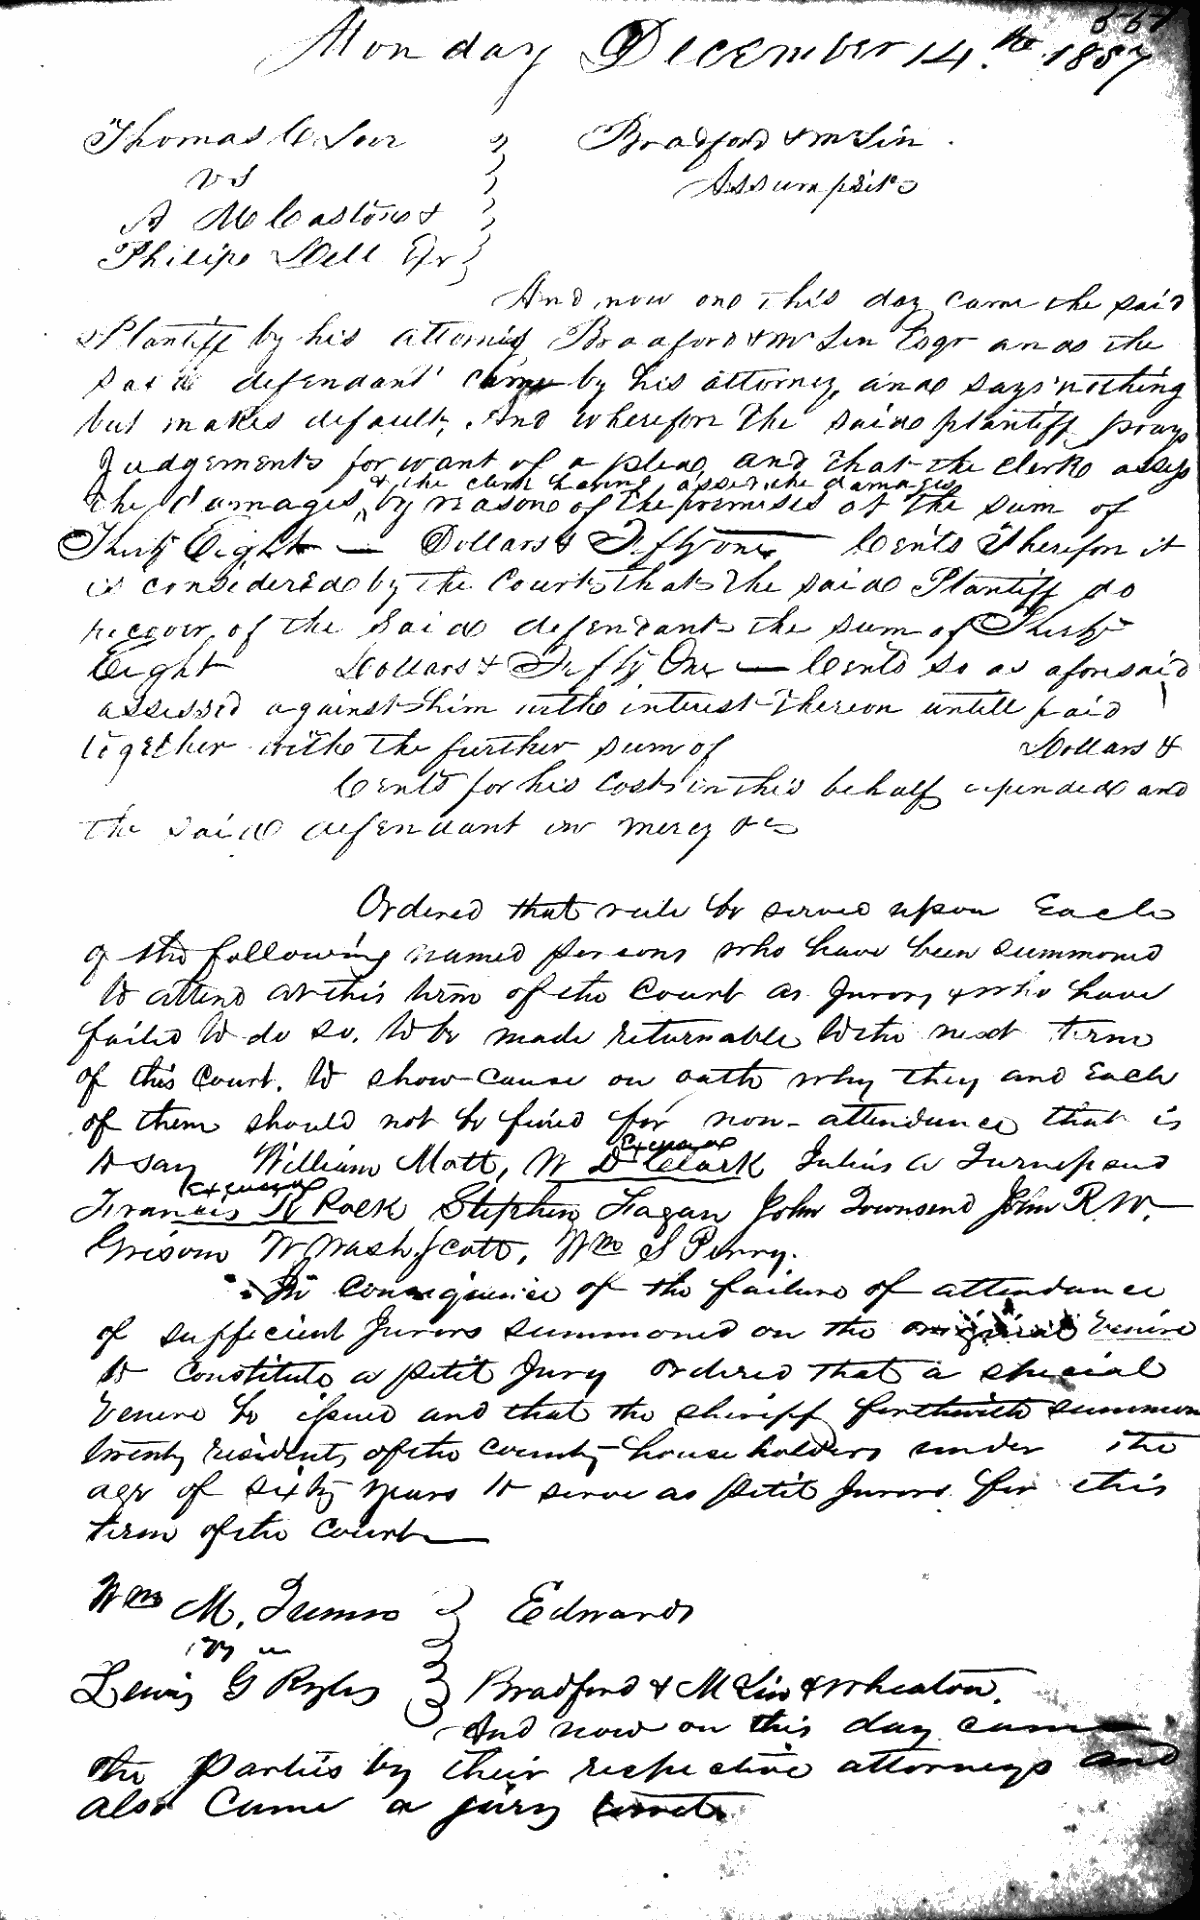 557
Monday December 14.th 1857
Thomas C. Loor } Bradford & McLin.
vs } Assumpsit
A McCastone &
Philip Dell Exr }
And now one this day came the said
Plantiff by his attorney Bradford & McLin Esqr and as the
said defendant came by his attorney, and says nothing
but makes default, And wherefore the said plantiff prays
Judgements for want of a plea and that the clerk assess
& the clerk having assess the damages
the damages by reasone of the premises at the sum of
Thirty Eight — Dollars & Fifty one Cents Therefore it
is considered by the Court that the said Plantiff do
recover of the said defendant the sum of Thirty
Eight Dollars & Fifty One — Cents so as aforesaid
assessed against him with interest thereon untill paid
together with the further sum of Dollars &
Cents for his costs in this behalf expended and
the said defendant in mercy &c
Ordered that rule be served upon Each
of the following named persons who have been summoned
to attend at this term of the Court as Jurors, & who have
failed to do so, to be made returnable to the next term
of this Court, to show cause on oath why they and Each
of them should not be fined for non-attendance that is
Excused
to say William Matt, W D Clark Julius A
Excused
Francis R Polk, Stephen Fagan John Townsend John R. W.
Grisom W Wash Scott, Wm S Perry.
In consequence of the failure of attendance
of sufficient Jurors summoned on the original Venire
to constitute a petit Jury ordered that a special
Venire be issued and that the sheriff forthwith summon
twenty residents of the county-householders under the
age of sixty years to serve as petit Jurors for this
term of the court —
Wm M. } Edwards
Lewis G Ryles } Bradford & McLin & Wheaton.
And now on this day came
the parties by their respective attorneys and
also came a jury